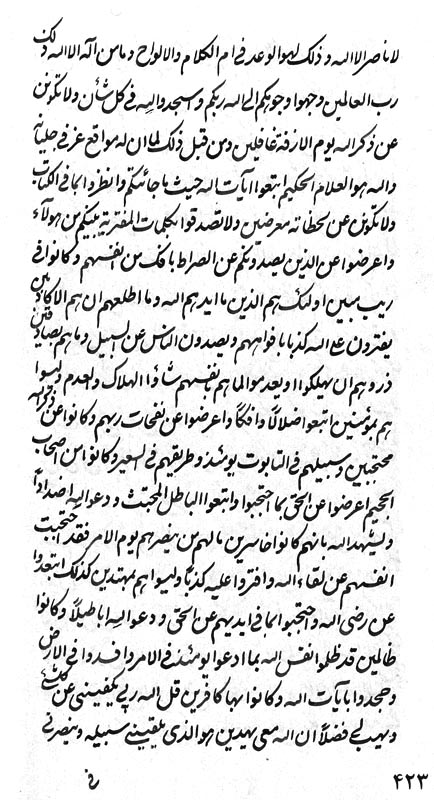 لا ناصر الا الله و ذلك لهو الوعد فى ام الكلام والالواح وما من اله الا الله ذلك
رب العالمين وجهوا وجوهكم الى الله ربكم واسجدوا اليه فى كل شأن ولا تكونن
عن ذكر الله يوم الازفة غافلين ومن قبل ذلك لما ان له مواقع عز فى
والله هو العلام الحكيم ابتعوا ايات الله حيث ما جائتكم وانظروا بما فى الكتاب
ولا تكونن عن لحظاته معرضين ولا تصدقوا بكلمات المفترية بينكم من هؤلآء
واعرضوا عن الذين يصدونكم عن الصراط بافك من انفسهم و كانوا فى
ريب مبين اولئك هم الذين ما ايدهم الله وما اطلعهم ان هم الا كاذبين
يفترون على الله كذبا بافواههم ويصدون الناس عن السبيل وما هم بصادقين
ذروهم ان يهلكوا او يعدموا لما هم بانفسهم شاؤا الهلاك والعدم وليسوا
هم بمؤمنين اتبعوا ضلالا وافكا واعرضوا عن نفحات ربهم وكانوا عن ذكر الله
محتجبين وسبيلهم فى التابوت يومئذ وطريقهم فى السعير وكانوا من اصحاب
الجحيم اعرضوا عن الحق بما احتجبوا واتبعوا الباطل المجتث و دعوا اليه اضدادا
وليشهد الله بانهم كانوا خاسرين ما لهم من ينصرهم يوم الامر فقد احتجبت
انفسهم عن لقاء الله وافتروا عليه كذبا وليسوا هم بمهتدين كذلك ابتعدوا
عن رضى الله واحتجبوا بما فى ايديهم عن الحق و دعوا اليه اباطيلا وكانوا
ظالمين قد ظلموا نفس الله بما ادعوا يومئذ فى الامر وافسدوا فى الارض
وجحدوا بايات الله وكانوا بها كافرين قل الله ربى يكفينى عن كلشئ
ويهب لى فضلا ان الله معى يهدين هو الذى يلقينى سبيله وينصرنى
۴۲۳